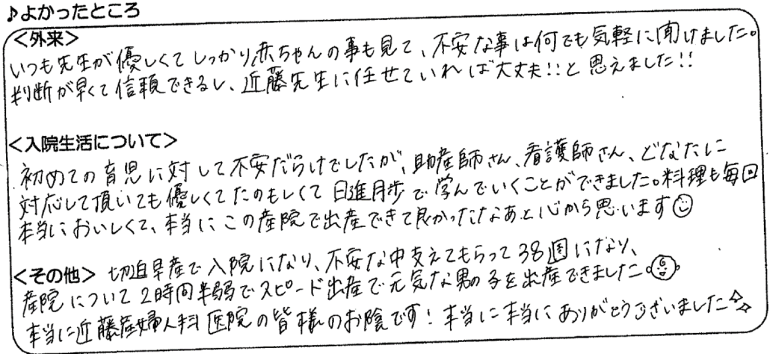 ♪よかったところ
<外来>
いつも先生が優しくてしっかり赤ちゃんの事も見て、不安な事は何でも気軽に聞けました。
判断が早くて信頼できるし、近藤先生に任せていれば大丈夫!!と思えました!!
<入院生活について>
初めての育児に対して不安だらけでしたが、助産師さん、看護師さん、どなたに
対応して頂いても優しくてたのもしくて日進月歩で学んでいくことができました。料理も毎回
本当においしくて、本当にこの産院で出産できて良かったなあと心から思います
<その他> 切迫早産で入院になり、不安な中支えてもらって38週になり、
産院について2時間半弱でスピード出産で元気な男の子を出産できました
本当に近藤産婦人科医院の皆様のお陰です!本当に本当にありがとうございました